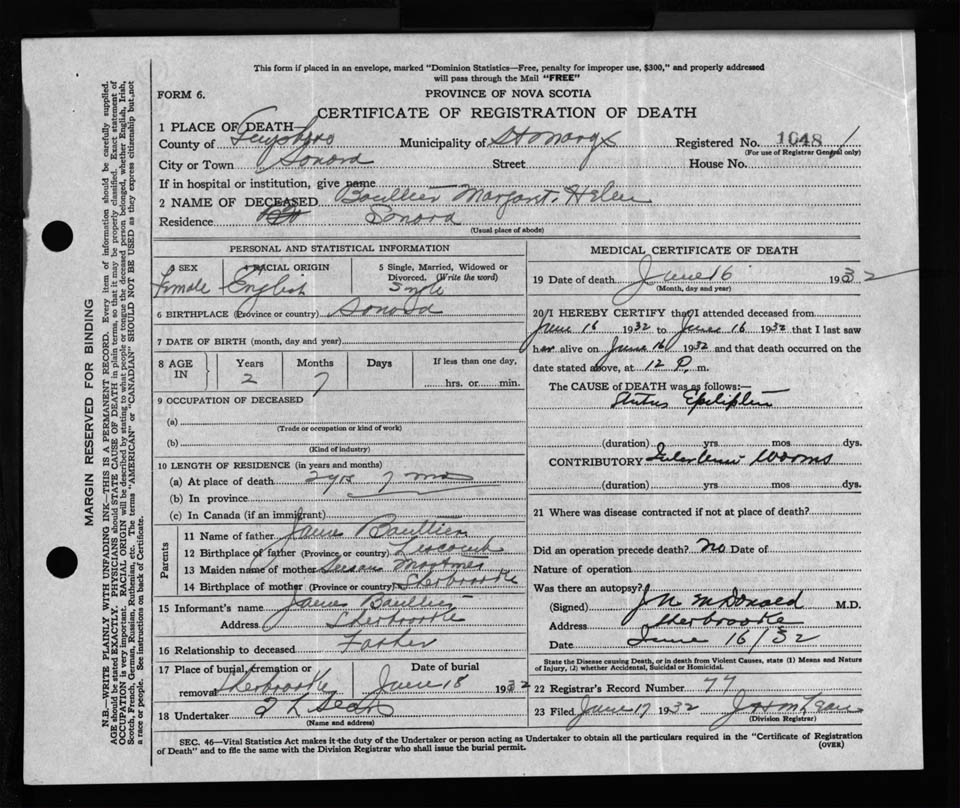 This form if placed in an envelope, marked "Dominion Statistics—Free, penalty for improper use, $300," and properly addressed
will pass through the Mail "FREE"
FORM 6.
PROVINCE OF NOVA SCOTIA
CERTIFICATE OF REGISTRATION OF DEATH
1 PLACE OF DEATH
County of Guysboro Municipality of St Marys Registered No. 1048
(For use of Registrar General only)
City or Town Sonora Street House No.
If in hospital or institution, give name
2 NAME OF DECEASED Margaret Helen
Residence Sonora
(Usual place of abode)
PERSONAL AND STATISTICAL INFORMATION
3 SEX Female
4 RACIAL ORIGIN English
5 Single, Married, Widowed or Divorced. (Write the word) Single
6 BIRTHPLACE (Province or country) Sonora
7 DATE OF BIRTH (month, day and year)
8 AGE IN Years 2 Months 7 Days If less than one day, hrs. or min.
9 OCCUPATION OF DECEASED
(a)
(Trade or occupation or kind of work)
(b)
(Kind of industry)
10 LENGTH OF RESIDENCE (in years and months)
(a) At place of death 2 yrs 7 mo
(b) In province
(c) In Canada (if an immigrant)
Parents
11 Name of father James
12 Birthplace of father (Province or country)
13 Maiden name of mother
14 Birthplace of mother (Province or country) Sherbrooke
15 Informant's name James
Address Sherbrooke
16 Relationship to deceased Father
17 Place of burial, cremation or removal Sherbrooke
Date of burial June 18 1932
18 Undertaker
(Name and address)
MEDICAL CERTIFICATE OF DEATH
19 Date of death June 16 1932
(Month, day and year)
20 I HEREBY CERTIFY that I attended deceased from
June 16 1932 to June 16 1932 that I last saw
her alive on June 16 1932 and that death occurred on the
date stated above, at 12 P. m.
The CAUSE of DEATH was as follows:—
Status Epilepticus
(duration) yrs mos dys.
CONTRIBUTORY Worms
(duration) yrs mos dys.
21 Where was disease contracted if not at place of death?
Did an operation precede death? no Date of
Nature of operation
Was there an autopsy?
(Signed) J N McDonald M.D.
Address Sherbrooke
Date June 16/32
State the Disease causing Death, or in death from Violent Causes, state (1) Means and Nature
of Injury, (2) whether Accidental, Suicidal or Homicidal.
22 Registrar's Record Number 77
23 Filed June 17 1932
(Division Registrar)
SEC. 46—Vital Statistics Act makes it the duty of the Undertaker or person acting as Undertaker to obtain all the particulars required in the "Certificate of Registration
of Death" and to file the same with the Division Registrar who shall issue the burial permit.
(OVER)
MARGIN RESERVED FOR BINDING
N.B.—WRITE PLAINLY WITH UNFADING INK—THIS IS A PERMANENT RECORD. Every item of information should be carefully supplied.
AGE should be stated EXACTLY. PHYSICIANS should STATE CAUSE OF DEATH in plain terms, so that it may be properly classified. Exact statement of
OCCUPATION is very important. RACIAL ORIGIN will be described by stating to what people or tongue the deceased person belonged, whether English, Irish,
Scotch, French, German, Russian, Ruthenian, etc. The terms "AMERICAN" or "CANADIAN" SHOULD NOT BE USED as they express citizenship but not
a race or people. See instructions on back of Certificate.